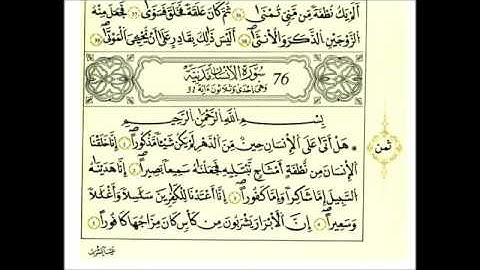 أَلَمْ يَكُ نُطْفَةً مِّن مَّنِيٍّ تُمْنَىٰ ثُمَّ كَانَ عَلَقَةً فَخَلَقَ فَسَوَّىٰ فَجَعَلَ مِنْهُ
اُلزَّوْجَيْنِ اِلذَّكَرَ وَالْأُنثَىٰ أَلَيْسَ ذَٰلِكَ بِقَٰدِرٍ عَلَىٰ أَنْ يُّحْيِيَ اَلْمَوْتَىٰ
سُورَةُ الْإِنسَانِ مَدَنِيَّة 76
وَهِيَ إِحْدَى وَثَلَاثُونَ ءَايَة 31
بِسْمِ اِللَّهِ اِلرَّحْمَٰنِ اِلرَّحِيمِ
هَلْ أَتَىٰ عَلَى اَلْإِنسَٰنِ حِينٌ مِّنَ اَلدَّهْرِ لَمْ يَكُن شَيْـٔاً مَّذْكُوراً 1 إِنَّا خَلَقْنَا
ثمن
اَلْإِنسَٰنَ مِن نُّطْفَةٍ أَمْشَاجٍ نَّبْتَلِيهِ فَجَعَلْنَٰهُ سَمِيعاً بَصِيراً 2 إِنَّا هَدَيْنَٰهُ
اُلسَّبِيلَ إِمَّا شَاكِراً وَإِمَّا كَفُوراً 3 إِنَّا أَعْتَدْنَا لِلْكَٰفِرِينَ سَلَٰسِلاً وَأَغْلَٰلاً
وَسَعِيراً 4 إِنَّ اَلْأَبْرَارَ يَشْرَبُونَ مِن كَأْسٍ كَانَ مِزَاجُهَا كَافُوراً 5